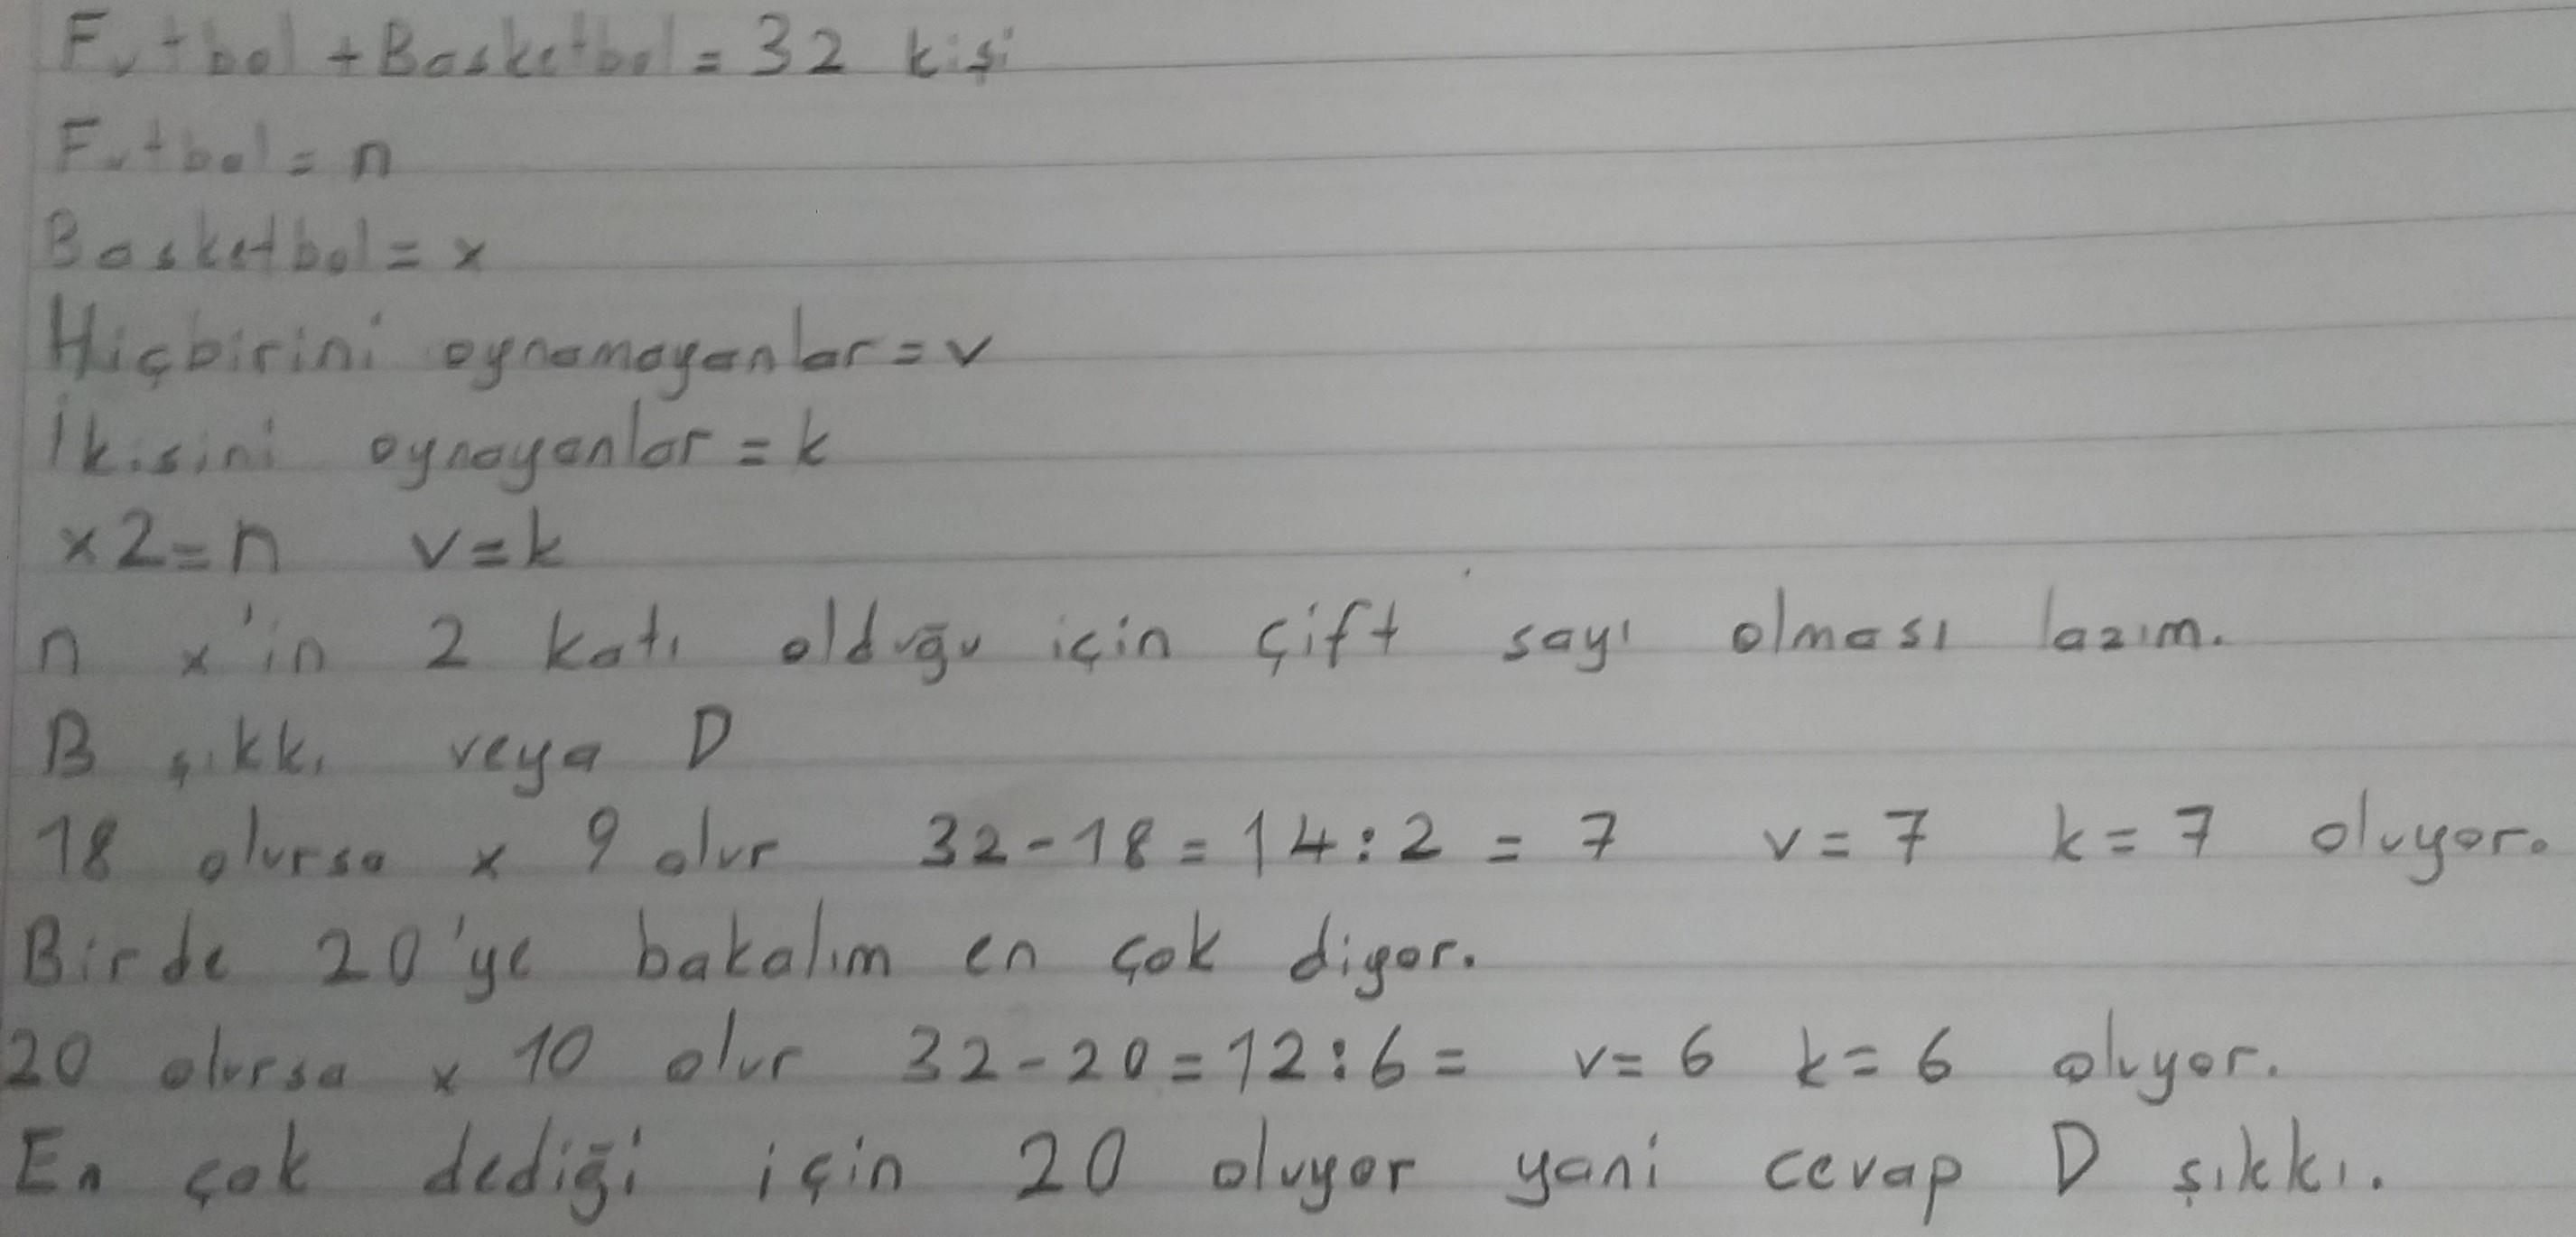 Futbol + Basketbol = 32 kişi
Futbol = n
Basketbol = x
Hiçbirini oynamayanlar = v
İkisini oynayanlar = k
x2=n v=k
n x'in 2 katı olduğu için çift sayı olması lazım.
B şıkkı veya D
18 olursa x 9 olur 32-18=14:2=7 v=7 k=7 oluyor.
Birde 20'ye bakalım en çok diyor.
20 olursa x 10 olur 32-20=12:6= v=6 k=6 oluyor.
En çok dediği için 20 oluyor yani cevap D şıkkı.